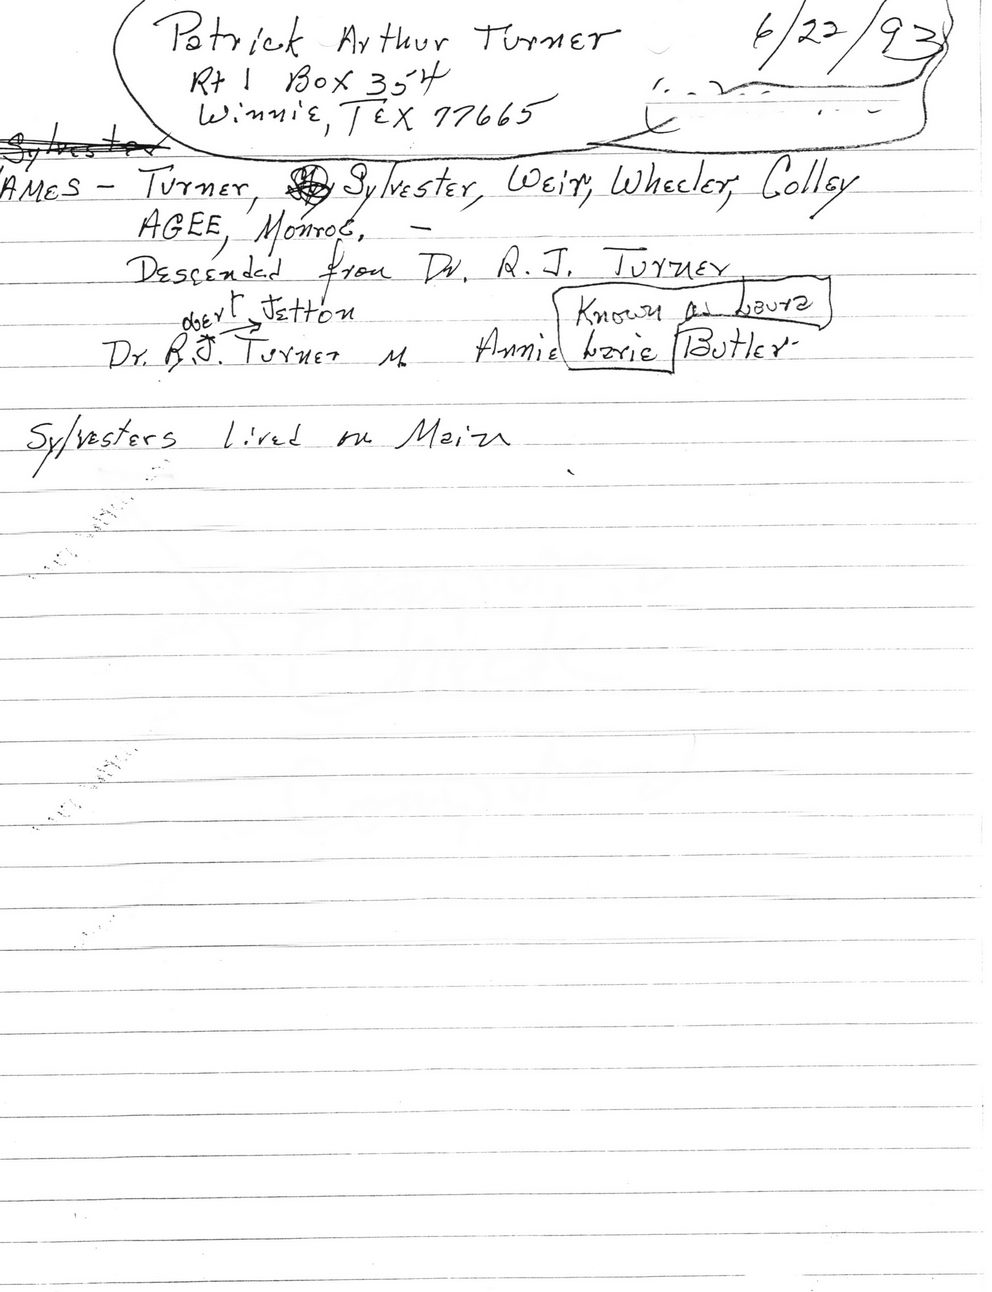 Patrick Arthur Turner 6/22/93
Rt 1 Box 354
Winnie, TEX 77665
Sylvester
AMES - Turner, Sylvester, Weir, Wheeler, Colley
AGEE, Monroe, -
Descended from Dr. R. J. Turner
obert Jetton Known as Laura
Dr. R.J. Turner m. Annie Larie Butler
Sylvesters Lived on Main